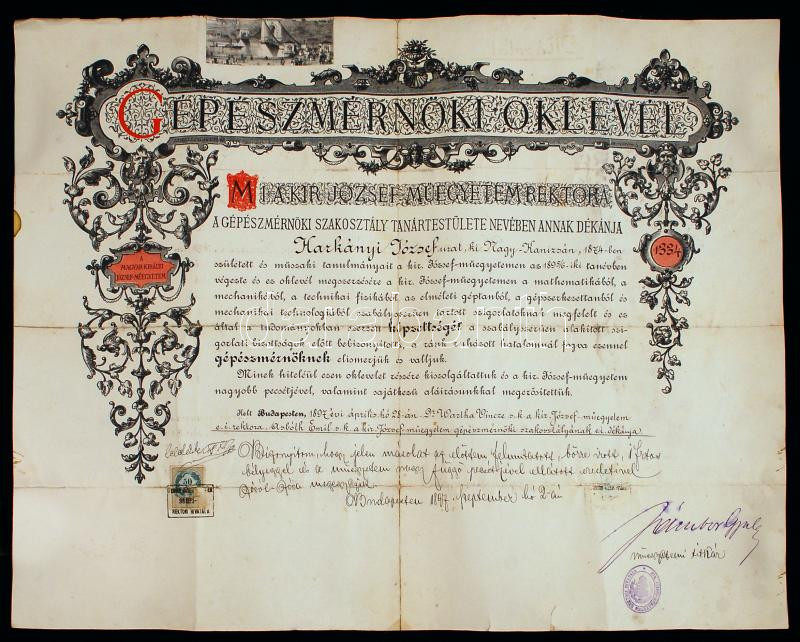 GÉPÉSZMÉRNÖKI OKLEVÉL
MI A KIR. JÓZSEF-MŰEGYETEM REKTORA
A GÉPÉSZMÉRNÖKI SZAKOSZTÁLY TANÁRTESTÜLETE NEVÉBEN ANNAK DÉKÁNJA
Harkányi József urat, ki Nagy-Kanizsán, 1874-ben
született és műszaki tanulmányait a kir. József-műegyetemen az 1895/6-iki tanévben
végezte és ez oklevél megszerzésére a kir. József-műegyetemen a mathematikából, a
mechanikából, a technikai fizikából, az elméleti géptanból, a gépszerkesztanból és
mechanikai technologiából szabályszerűen tartott szigorlatoknak megfelelt és ez
által e tudományokban szerzett képzettségét a szabályszerűen alakított szi-
gorlati bizottságok előtt bebizonyította, a ránk ruházott hatalomnál fogva ezennel
gépészmérnöknek elismerjük és valljuk.
Minek hiteléül ezen oklevelet részére kiszolgáltattuk és a kir. József-műegyetem
nagyobb pecsétjével, valamint sajátkezű aláirásunkkal megerősítettük.
Kelt Budapesten, 1897 évi április hó 28-án. Dr. Wartha Vincze s.k. a kir. József-műegyetem
e.i. rektora. Asbóth Emil s.k. a kir. József-műegyetem gépészmérnöki szakosztályának e.i. dékánja.
A MAGYAR KIRÁLYI
JÓZSEF-MŰEGYETEM
1334
Bizonyítom, hogy jelen másolat az előttem felmutatott, bőrre irott, 1 frtos
bélyeggel és a műegyetem nagy függő pecsétjével ellátott eredetivel
szóról-szóra megegyezik.
Budapesten 1897 szeptember hó 2-án
50
REKTORI HIVATALA
műegyetemi titkár